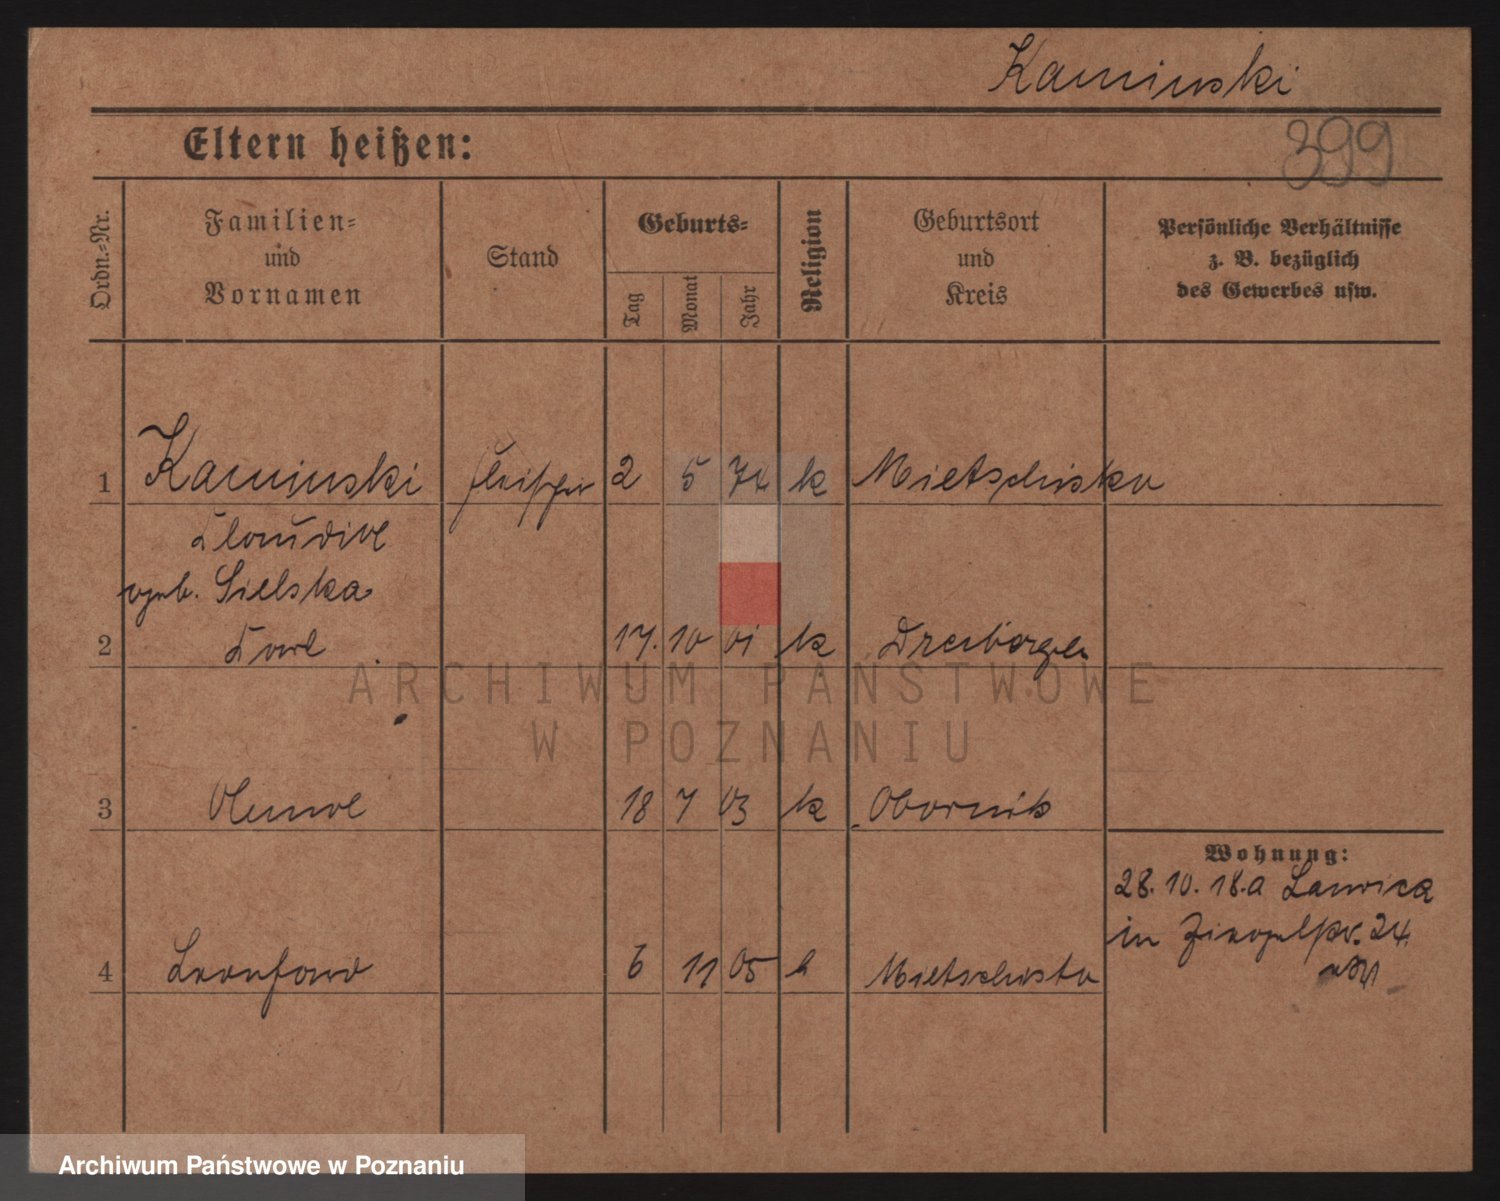 Kaminski
399
Eltern heißen:
Ordn.=Nr.
Familien=
und
Vornamen
Stand
Geburts=
Tag
Monat
Jahr
Religion
Geburtsort
und
Kreis
Persönliche Verhältnisse
z. B. bezüglich
des Gewerbes usw.
1 Kaminski Fleischer 2 5 74 k Mietschisko
Klaudine
geb. Sielska
2 Karl 17. 10 01 k Dreibergen
ARCHIWUM PAŃSTWOWE
W POZNANIU
3 18 7 03 k Obornik
Wohnung:
28. 10. 18. a Lawica
in 24.
4 6 11 05 k Mietschisko
Archiwum Państwowe w Poznaniu